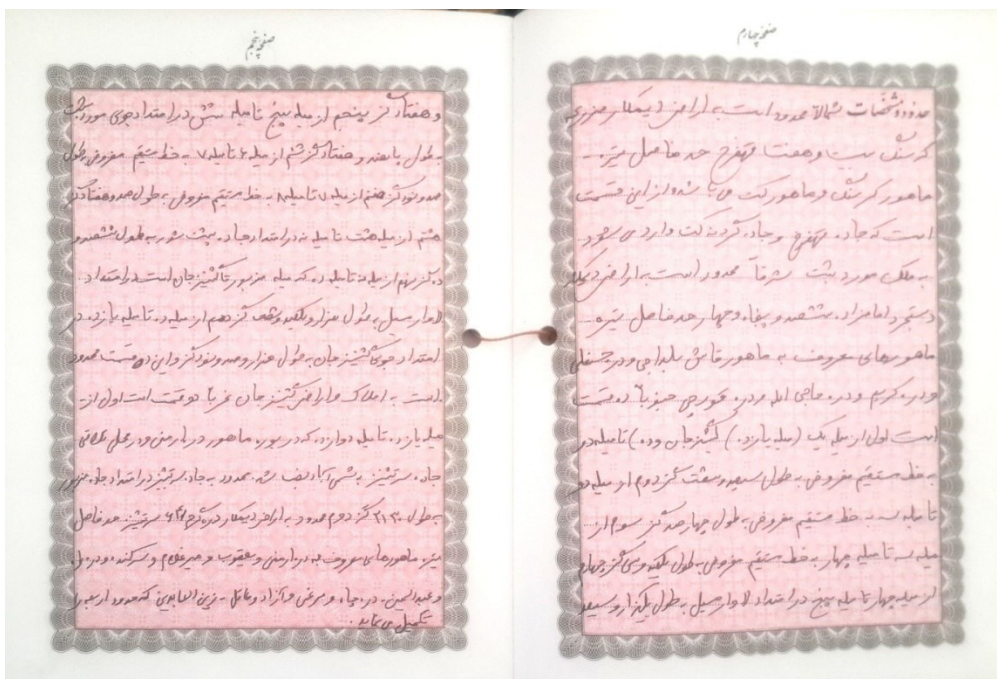 صفحه چهارم
حدود و مشخصات شمالاً محدود است به اراضی دیمکار مزرعه
کرسنگ بیت و هفتا قهفرخ حد فاصل تیره
ماهور کرسنگ و ماهور کت می باشد و از این قسمت
است که جاده قهفرخ و جاده گردنه کت وارد می شود
به ملک مورد ثبت شرقاً محدود است به اراضی دیمکار
دستجرد امامزاده ششصد و پنجاه و چهار حد فاصل تیره
ماهورهای معروف به ماهور قابش یلداجی و دره حسنعلی
و دره کریم و دره حاجی اله مردده قسمت
است اول از میله یک (میله یازده) گشنیزجان و ده) تا میله دو
به خط مستقیم مفروض به طول سیصد و شصت گز دوم از میله دو
تا میله سه به خط مستقیم مفروض به طول چهارصد گز سوم از
میله سه تا میله چهار به خط مستقیم مفروض به طول یکصد و سی گز چهارم
از میله چهار تا میله پنج در امتداد به طول یکهزار و سیصد
صفحه پنجم
و هفتاد گز پنجم از میله پنج تا میله شش در امتداد جوی مورد ثبت
به طول پانصد و هفتاد گز ششم از میله ۶ تا میله ۷ به خط مستقیم مفروض بطول
صد و نود گز هفتم از میله ۷ تا میله ۸ به خط مستقیم مفروض به طول صد و هفتاد گز
هشتم از میله هشت تا میله نه در امتداد جاده پشت شور به طول ششصد و
ده گز نهم از میله نه تا میله ده که میله مزبور تا گشنیزجان است در امتداد
به طول هزار و یکصد و هفت گز دهم از میله ده تا میله یازده در
امتداد جوی گشنیزجان به طول هزار و صد و نود گز و این دو قسمت محدود
است به املاک و اراضی گشنیزجان غرباً دو قسمت است اول از
میله یازده تا میله دوازده که در بوره ماهور دربارمنی و در محل تلاقی
جاده سرتشنیز به شمس آباد نصب شده محدود به جاده سرتشنیز در امتداد جاده مزبور
به طول ۳۱۳۰ گز دوم محدود به اراضی دیمکار سرتشنیز حد فاصل
تیره ماهورهای معروف به دره ارمنی و یعقوب و میرغلام و سرکنده و دره
و عبدالحسین دره چاه و مرغی و آزاد و عاقل زین العابدین که حدود اربعه را
تکمیل می نماید